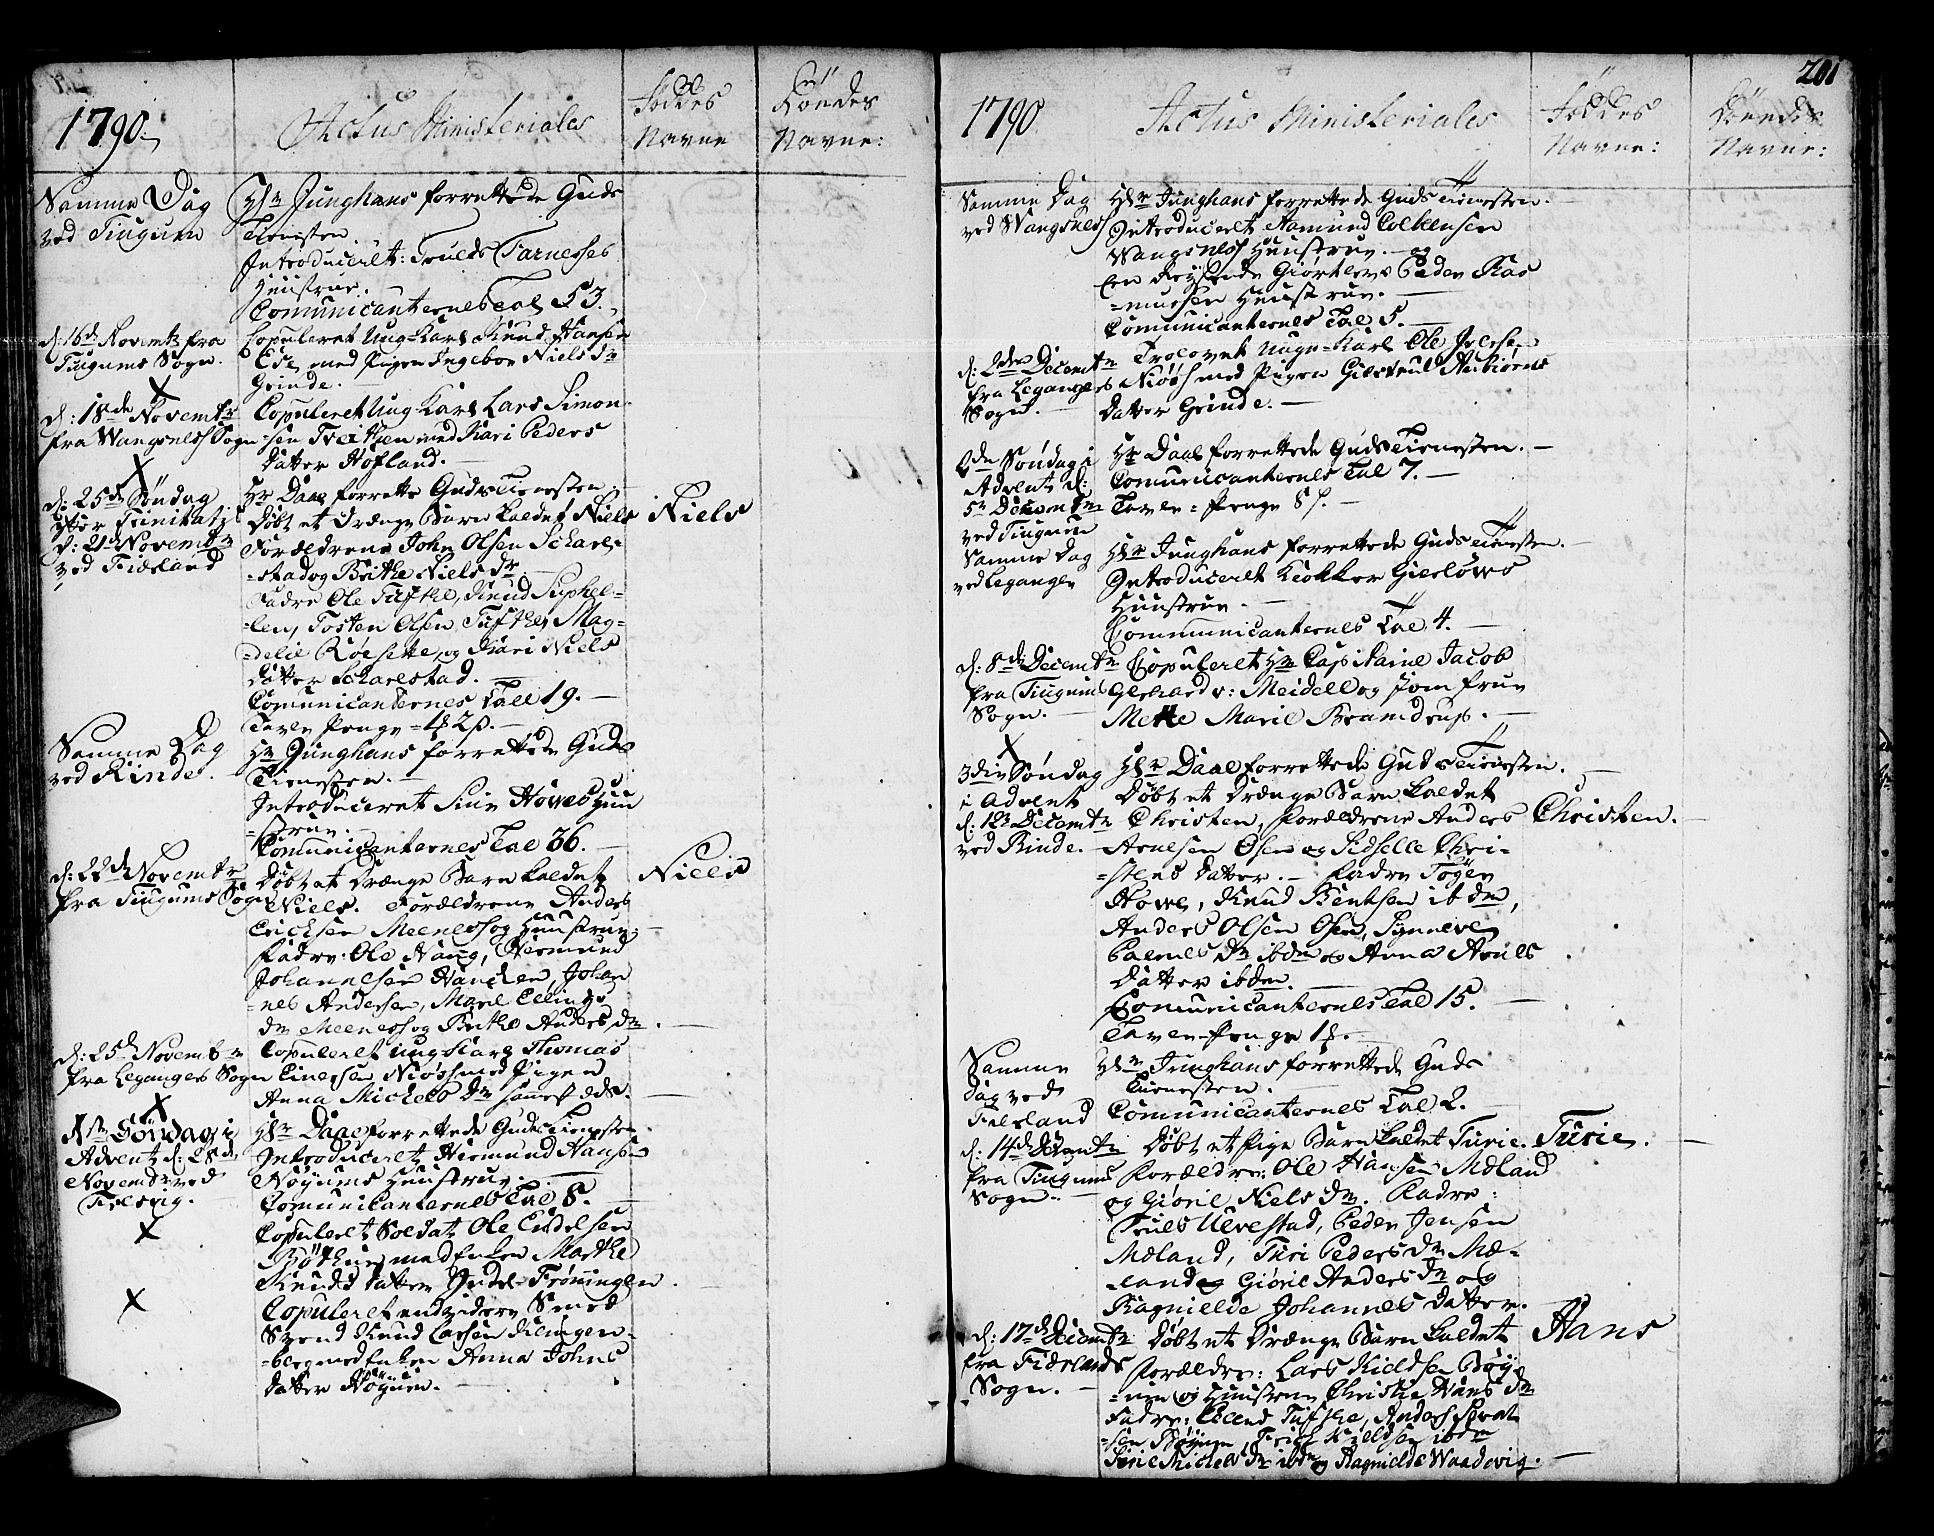 1790.
Actus Ministeriales
Føddes Navne
Døendes Navne:
Samme Dag
ved Tiugum
Hr Junghans forrettede Guds
Tienesten.
Introduceret: Truels Tarnesses
Huustrue.
Comunicanternes Tal 53.
d: 16de Novembr fra
Tiugums Sogn.
Copuleret Ung-Karl Knud Hansen
Ese med Pigen Ingebor Niels Dr
Grinde.
d: 18de Novembr
fra Wangsness Sogn
Copuleret Ung-Karl Lars Simon-
sen Treithen med Kari Peders
Datter Hofland.
d: 25de Søndag
efter Trinitatis
d: 21de Novembr
ved Fierland
Hr Daae forrette Guds Tienesten.
Døbt et Drænge Barn kaldet Niels
Niels
Forældrene John Olsen Scharl-
-stad og Brithe Niels Dr
Fadre Ole Tufthe, Knud Suphel-
-len, Tosten Olsen Tufthe, Mag-
-delie Røesette, og Kari Niels
Datter Scharestad.
Comunicanternes Tall 19.
Tavle Penge
Samme Dag
ved Rinde.
Hr Junghans forrettede Guds
Tienesten.
Introduceret Siur Howes Huu
-strue.
Comunicanternes Tal 36.
d: 22de Novembr
fra Tiugums Sogn
Døbt et Drænge Barn kaldet
Niels. Forældrene Anders
Niels
Erichsen Meeness og Huustrue;
Fadre: Ole Naug, Hermund
Johannesen Hamren, Johan
-nes Andersen, Marie Ellings
Dr Meeness og Brithe Anders Dr.
d: 25de Novembr
fra Leganger Sogn
Copuleret Ung Karl Thomas
Einersen Niøss med Pigen
Anna Michels Dr samest eds.
1ste Søndag i
Advent d: 28de
Novembr ved
Fieresvig.
Hr Daae forrettede Guds Tienesten.
Introduceret Hermund Hanse
Nøyums Huustrue.
Comunicanternes Tal 8.
Copuleret Soldat Ole Endresen
Bøthun med Enken Marthe
Knuds Datter Indre Frønningen.
Copuleret endvidere Smed
Svend Knud Larsen
-berg med Enken Anna Johns
Datter Nøyum.
201
1790
Actus Ministeriales
Føddes Navne:
Døendes Navne:
Samme Dag
ved Wangsness
Hr Junghans forrettede Guds Tienesten.
Introduceret Aamund Colbensen
Wangsness Huustrue. og
Een Reysende Giørtlers Peder Ras
-mussen Huustrue.
Comunicanternes Tal 5.
d: 2den Decembr
fra Leganger
Sogn.
Trolovet Unge-Karl Ole Jelesen
Niøss med Pigen Gietrud Anbiørns
Datter Grinde.
2den Søndag i
Advent d:
5te Decembr
ved Tiugum
Hr Daae forrettede Guds Tienesten.
Comunicanternes Tal 7.
Tavle-Penge
Samme Dag
ved Leganger
Hr Junghans forrettede Guds Tienesten.
Introduceret Klokker Gierløws
Huustrue.
Communicanternes Tal 4.
d: 8de Decembr
fra Tiugums
Sogn.
Copuleret Hr Capitaine Jacob
Gerhard v: Meidell og Jomfrue
Mette Marie Bramdrup.
3die Søndag
i Advent
d: 12te Decembr
ved Rinde.
Hr Daae forrettede Guds Tienesten.
Døbt et Drænge Barn kaldet
Christen, Forældrene Anders
Christen.
Arnesen Øsen og Sidselle Chri-
-stens Datter. Fadre Tøger
Howe, Knud Bentsen ibdm,
Anders Olsen Øsen, Synneve
Paernes Dr ibdm og Anna Arnes
Datter ibdm.
Comunicanternes Tal 15.
Tavle-Penge
Samme
Dag ved
Fierland
Hr Junghans forrettede Guds
Tienesten.
Comunicanternes Tal 2.
d: 14de Decembr
fra Tiugums
Sogn.
Døbt et Pige Barn kaldet Turie.
Turie.
Forældre: Ole Hansen Mæland
og Giøril Niels Dr. Fadre:
Truls Ulvestad, Peder Jensen
Mæland, Turi Peders Dr Mæ-
-land og Giøril Anders Dr og
Ragnielde Johannes Datter.
d: 17de Decembr
fra Fierlands
Sogn.
Døbt et Drænge Barn kaldet
Hans
Forældre: Lars Kieldsen Bøy-
-um og Huustrue Christie Hans Dr
Fadre: Erend Tufthe, Anders
-sen Bøyum, Erich Kieldsen ibdm
Turie Michels Dr ibdm og Ragnielde